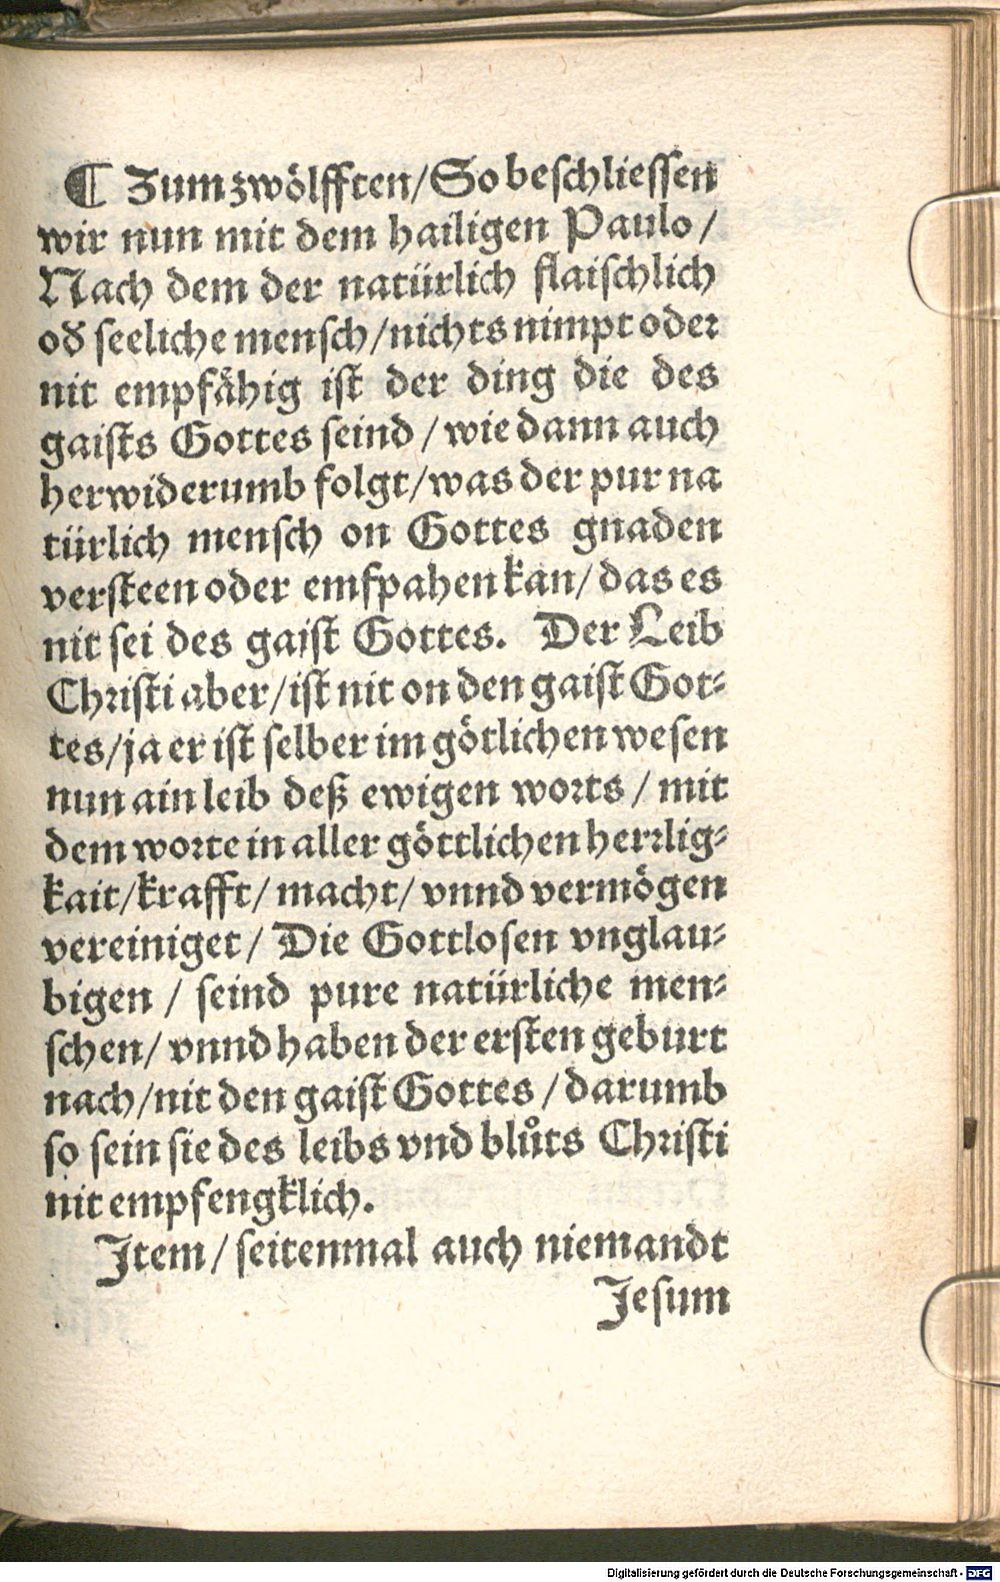 ¶ Zum zwölfften/So beschliessen
wir nun mit dem hailigen Paulo/
Nach dem der natürlich flaischlich
oð seeliche mensch/nichts nimpt oder
nit empfähig ist der ding die des
gaists Gottes seind/wie dann auch
herwiderumb folgt/was der pur na
türlich mensch on Gottes gnaden
versteen oder emfpahen kan/das es
nit sei des gaist Gottes. Der Leib
Christi aber/ist nit on den gaist Got-
tes/ja er ist selber im götlichen wesen
nun ain leib deß ewigen worts/mit
dem worte in aller göttlichen herrlig-
kait/krafft/macht/vnnd vermögen
vereiniget/Die Gottlosen vnglau-
bigen/seind pure natürliche men-
schen/vnnd haben der ersten geburt
nach/nit den gaist Gottes/darumb
so sein sie des leibs vnd blůts Christi
nit empfengklich.
Item/seitenmal auch niemandt
Jesum
Digitalisierung gefördert durch die Deutsche Forschungsgemeinschaft - DFG